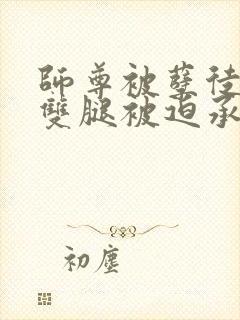 師尊被孽徒
雙腿被迫承
初塵